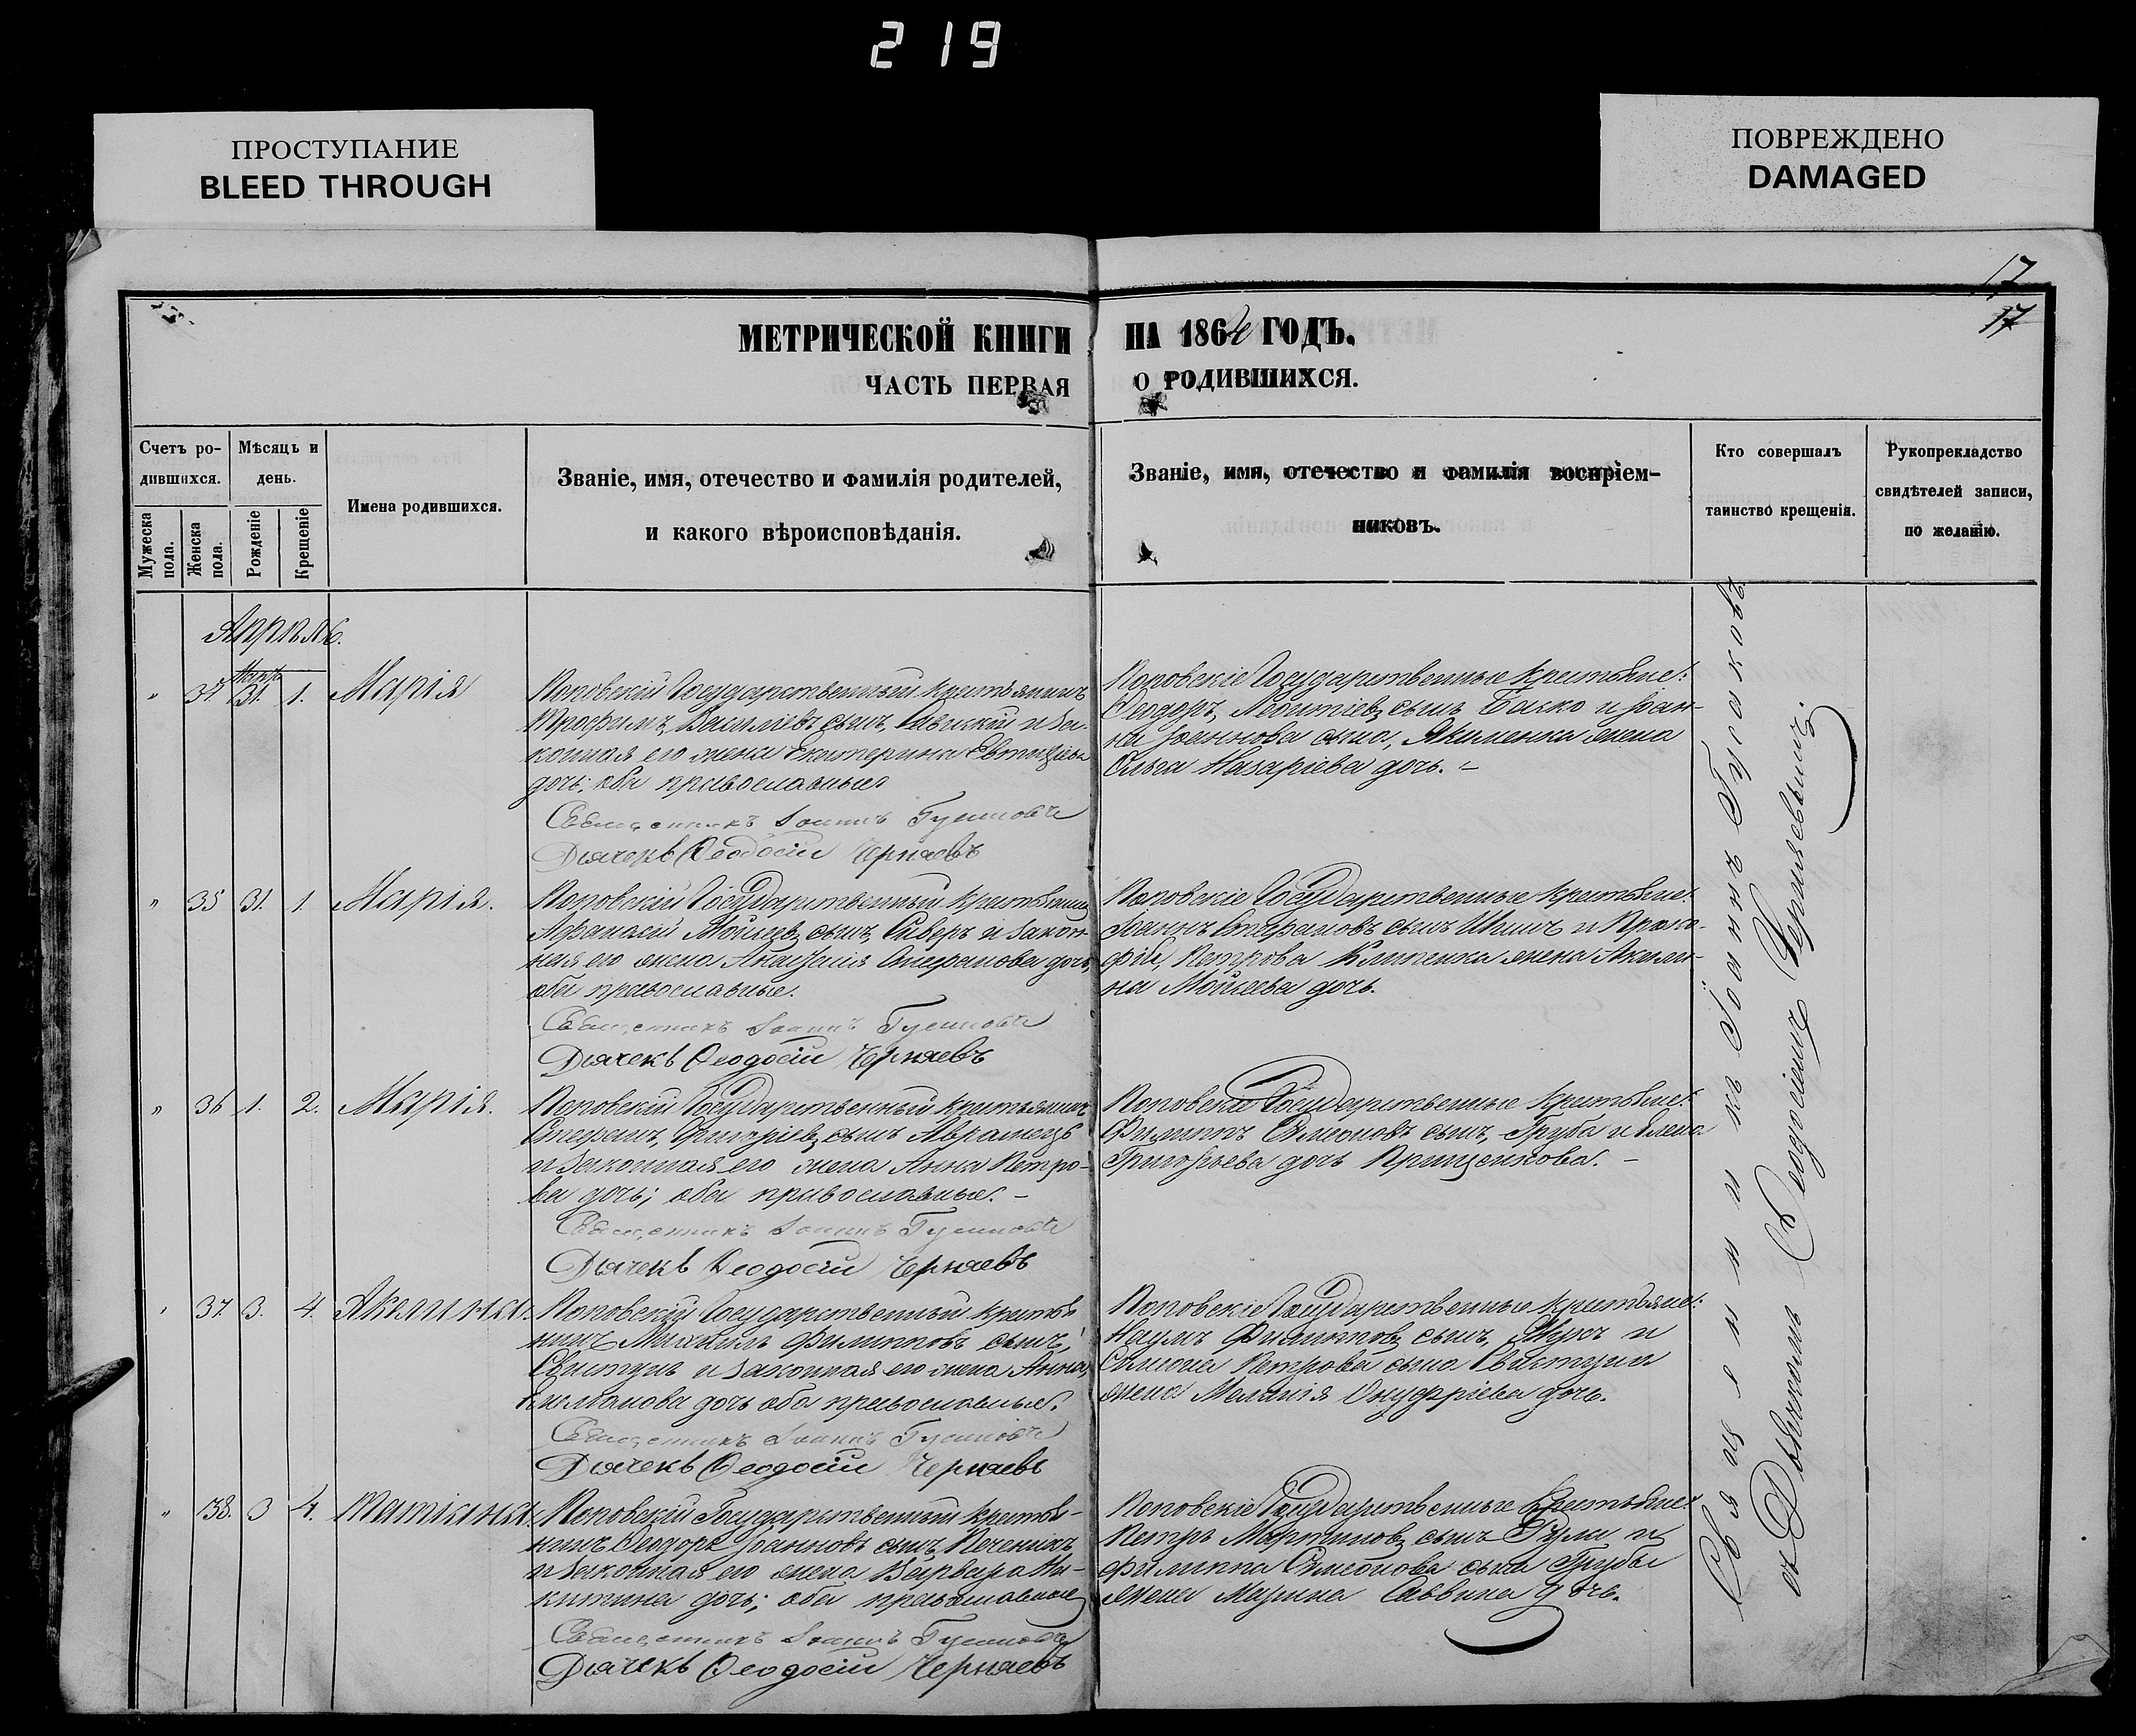 219
ПРОСТУПАНИЕ
BLEED THROUGH
ПОВРЕЖДЕНО
DAMAGED
17
17
МЕТРИЧЕСКОЙ КНИГИ НА 1864 ГОДЪ.
ЧАСТЬ ПЕРВАЯ О РОДИВШИХСЯ.
Счетъ ро-
дившихся.
Мужеска
пола.
Женска
пола.
Мѣсяцъ и
день.
Рожденіе
Крещеніе
Имена родившихся.
Званіе, имя, отечество и фамилія родителей,
и какого вѣроисповѣданія.
Званіе, имя, отечество и фамилія воспріем-
никовъ.
Кто совершалъ
таинство крещенія.
Рукоприкладство
свидѣтелей записи,
по желанію.
Апрѣль.
Мартъ
" 34. 31. 1. Марія
Поповскій Государственный крестьянинъ
Трофимъ Василіевъ сынъ, и за-
конная его жена Екатерина
дочь; оба православные
Священникъ Іоаннъ Гусаковъ
Дьячекъ Ѳеодосій Черняевъ
Поповскіе Государственные крестьяне:
Ѳеодоръ Леонтіевъ сынъ Бацко и Іоан-
на Іоаннова сына, Якименка жена
Ольга Назаріева дочь. –
" 35 31. 1. Марія.
Поповскій Государственный крестьянинъ
Афанасій Мойсеевъ сынъ, Сиверъ и закон-
ная его жена Анастасія Стефанова дочь,
оба православные.
Священникъ Іоаннъ Гусаковъ
Дьячекъ Ѳеодосій Черняевъ
Поповскіе Государственные крестьяне:
Іоаннъ Стефановъ сынъ и Проко-
фія Петрова Клименка жена Акили-
на Мойсеева дочь.
" 36 1. 2. Марія.
Поповскій Государственный крестьянинъ
Стефанъ Григоріевъ сынъ Авраменко
и законная его жена Анна Петро-
ва дочь; оба православные. –
Священникъ Іоаннъ Гусаковъ
Дьячекъ Ѳеодосій Черняевъ
Поповскіе Государственные крестьяне:
Филиппъ Симеоновъ сынъ, Груба и Елена
Григорьева дочь Прищенкова. –
" 37 3. 4. Акелина.
Поповскій Государственный крестья-
нинъ Михаилъ Филипповъ сынъ,
Свистунъ и законная его жена Анна
дочь оба православные.
Священникъ Іоаннъ Гусаковъ
Дьячекъ Ѳеодосій Черняевъ
Поповскіе Государственные крестьяне:
Наумъ Филипповъ сынъ, и
Петрова сына Свистуна
жена Меланія Онуфріева дочь.
" 38. 3 4. Татіана.
Поповскій Государственный крестья-
нинъ Ѳеодоръ Іоанновъ сынъ Печеникъ
и законная его жена Варвара Ни-
китина дочь; оба православные
Священникъ Іоаннъ Гусаковъ
Дьячекъ Ѳеодосій Черняевъ
Поповскіе Государственные крестьяне:
Петръ Мартиновъ сынъ и
Филиппа Симеонова сына Грубы
жена Марина Саввина дочь.
Священникъ Іоаннъ Гусаковъ
съ Дьячкомъ Ѳеодосіемъ Черняевымъ.